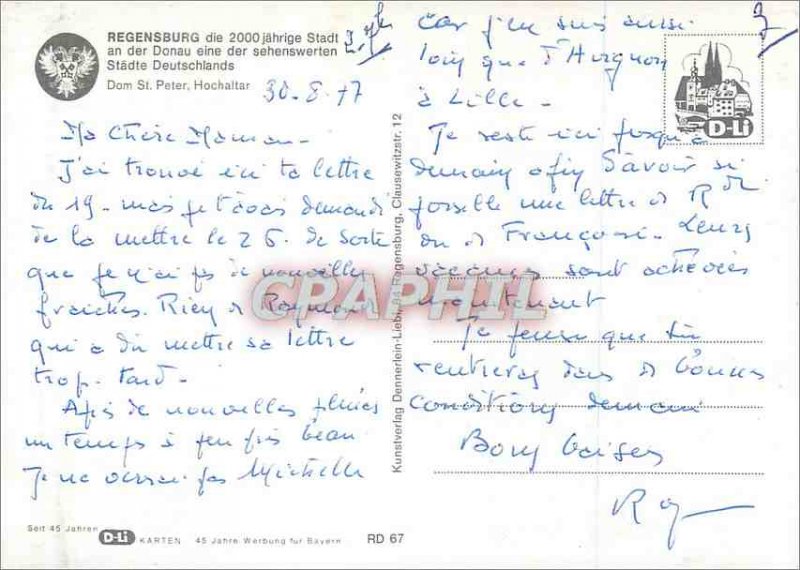 REGENSBURG die 2000 jährige Stadt
an der Donau eine der sehenswerten
Städte Deutschlands
Dom St. Peter, Hochaltar
30.8.77
Ma Chère Maman -
J'ai trouvé ici ta lettre
du 19 - mais je t'avais demandé
de la mettre le 26. de sorte
que je n'ai pas de nouvelles
fraîches. Rien de Raymond
qui a dû mettre sa lettre
trop tard -
Après de nouvelles pluies
un temps à peu près beau
Je ne verrai pas Michelle
car j'en suis aussi
loin que d'Avignon
à Lille -
Je reste ici jusqu'à
demain afin d'avoir si
possible une lettre de R
ou de Françoise. Leurs
vacances sont achevées
maintenant
Je pense que tu
rentreras dans de bonnes
conditions demain
Bons baisers
Kunstverlag Dennerlein-Liebl, 84 Regensburg, Clausewitzstr. 12
D-Li
CPAPHIL
Seit 45 Jahren D-Li KARTEN 45 Jahre Werbung für Bayern RD 67